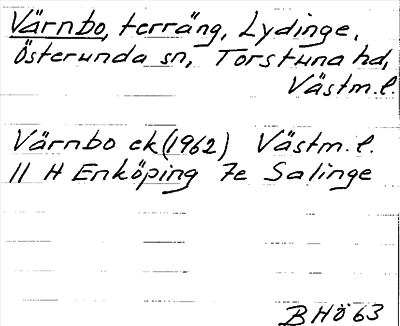 Värnbo, terräng, Lydinge,
Österunda sn, Torstuna hd,
Västm.l.
Värnbo ek (1962) Västm.l.
11 H Enköping 7e Salinge
BHö 63